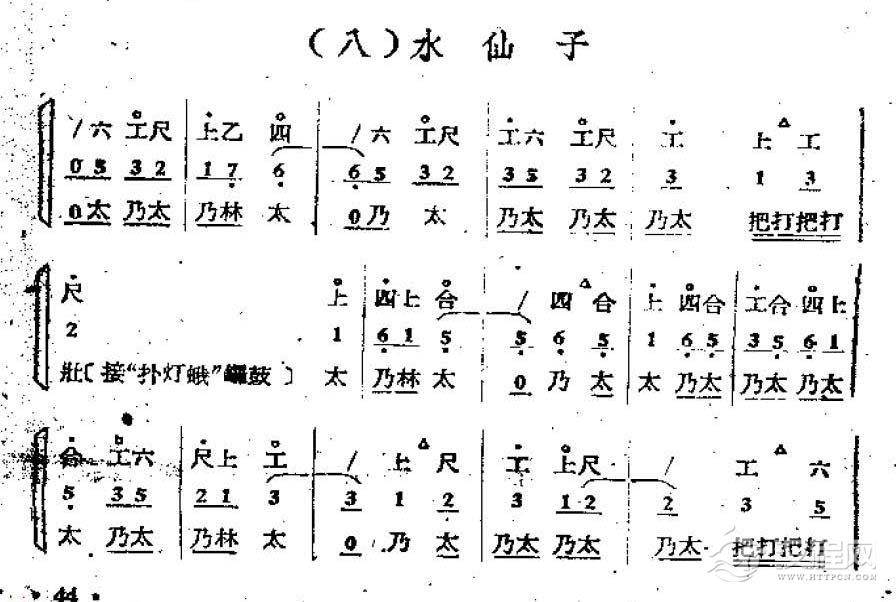 （八）水仙子
/六 工尺 上乙 四 /六 工尺 工六 工尺 工 上 工
0 5 3 2 1 7 6 6 5 3 2 3 5 3 2 3 1 3
0太 乃太 乃林 太 0乃 太 乃太 乃太 乃太 把打把打
尺 上 四上 合 / 四 合 上 四合 工合 四上
2 1 6 1 5 5 6 5 1 6 5 3 5 6 1
壯〔接“扑灯蛾”鑼鼓〕 太 乃林 太 0 乃 太 太 乃太 乃太 乃太
合 工六 尺上 工 / 上 尺 工 上尺 / 工 六
5 3 5 2 1 3 3 1 2 3 1 2 2 3 5
太 乃太 乃林 太 0 乃 太 乃太 乃太 乃太 把打把打
44
WWW.HTTPCN.COM